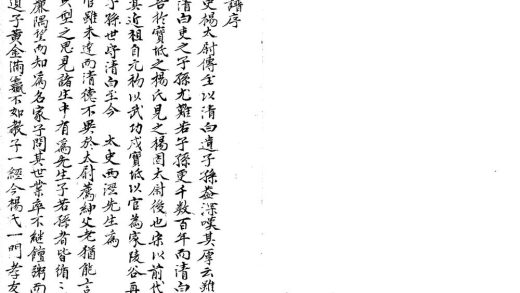 譜序
史楊太尉傳至以清白遺子孫益深嘆其厚云雖
清白吏之子孫尤難若子孫更千數百年而清白
吾於寶坻之楊氏見之楊固太尉後也宋以前代
其近祖自元初以武功戍寶坻以官為家陵谷再
子孫世守清白至今　太史西溟先生為
官雖未達而清德不異於太尉薦紳父老猶能言
典型之思見諸生中有為先生子若孫者皆循〻
廉隅望而知為名家子問其世業率不繼饘粥而
遺子黃金滿籯不如教子一經今楊氏一門孝友